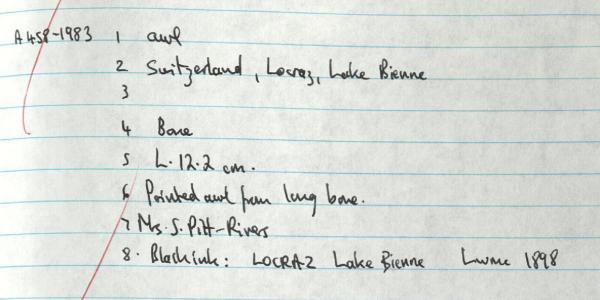 A458-1983 1 awl
2 Switzerland, Locraz, Lake Bienne
3
4 Bone
5 L. 12.2 cm.
6 Pointed awl from long bone.
7 Mrs. S. Pitt-Rivers
8. Black ink: LOCRAZ Lake Bienne 1898